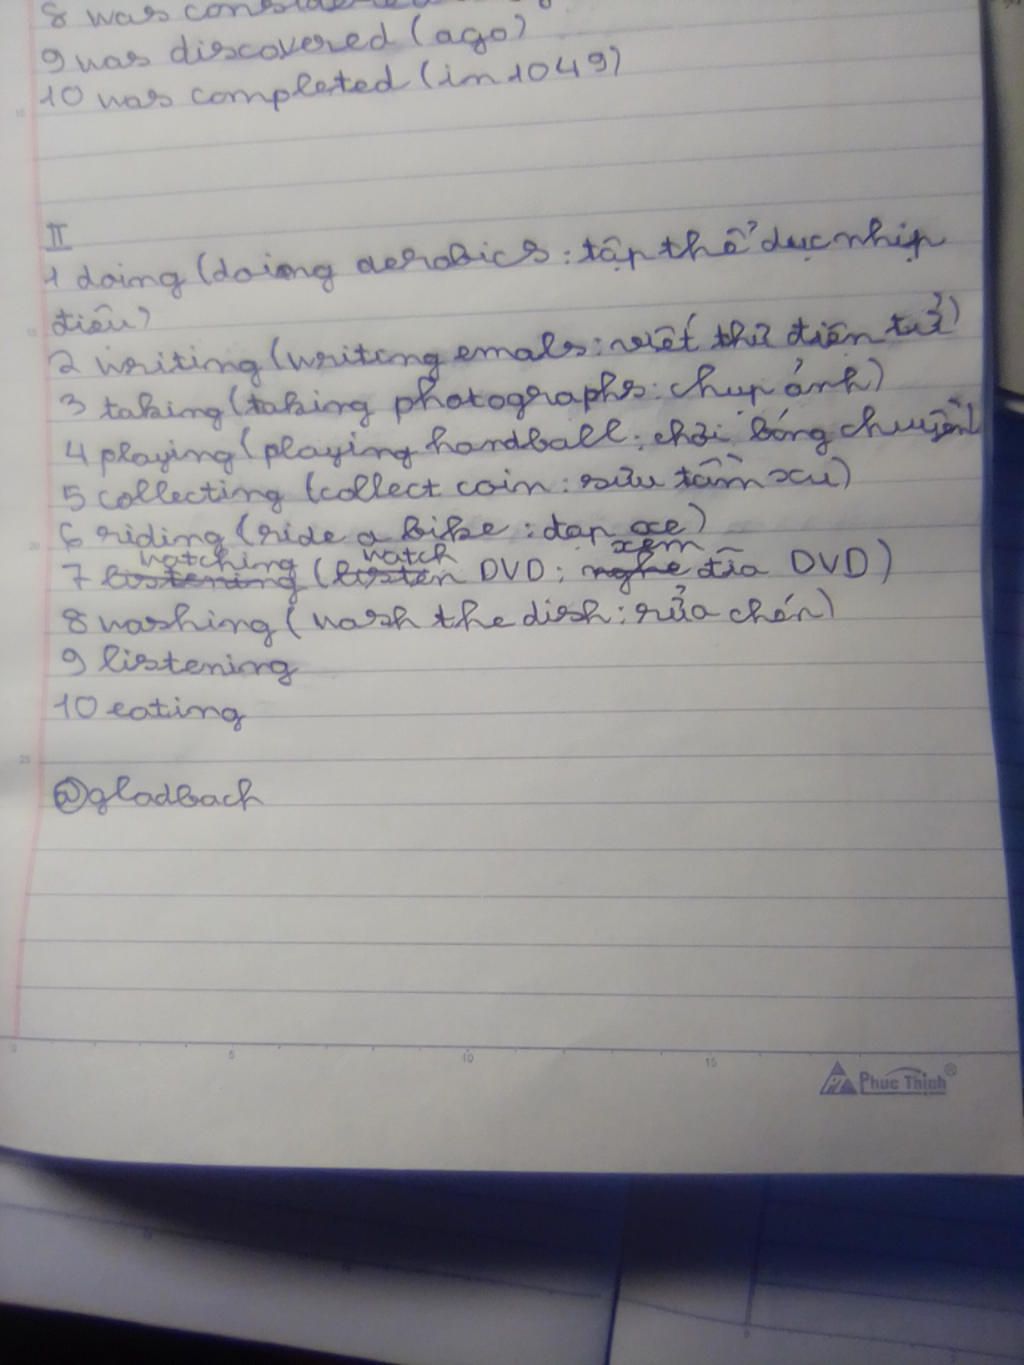 8 was considered
9 was discovered (ago)
10 was completed (in 1049)
II
1 doing (doing aerobics: tập thể dục nhịp
điệu)
2 writing (writing emals: viết thư điện tử)
3 taking (taking photographs: chụp ảnh)
4 playing (playing handball: chơi bóng chuyền)
5 collecting (collect coin: sưu tầm xu)
6 riding (ride a bike: đạp xe)
watching watch xem
7 listening (listen DVD: nghe đĩa DVD)
8 washing (wash the dish: rửa chén)
9 listening
10 eating
@gladbach
0 5 10 15
Phuc Thinh®